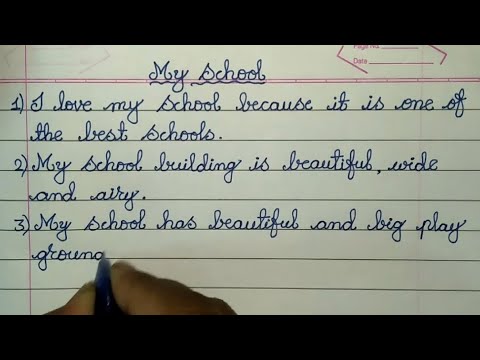 Page No.
Date
My School
1) I love my school because it is one of
the best schools.
2) My school building is beautiful, wide
and airy.
3) My school has beautiful and big play
groun